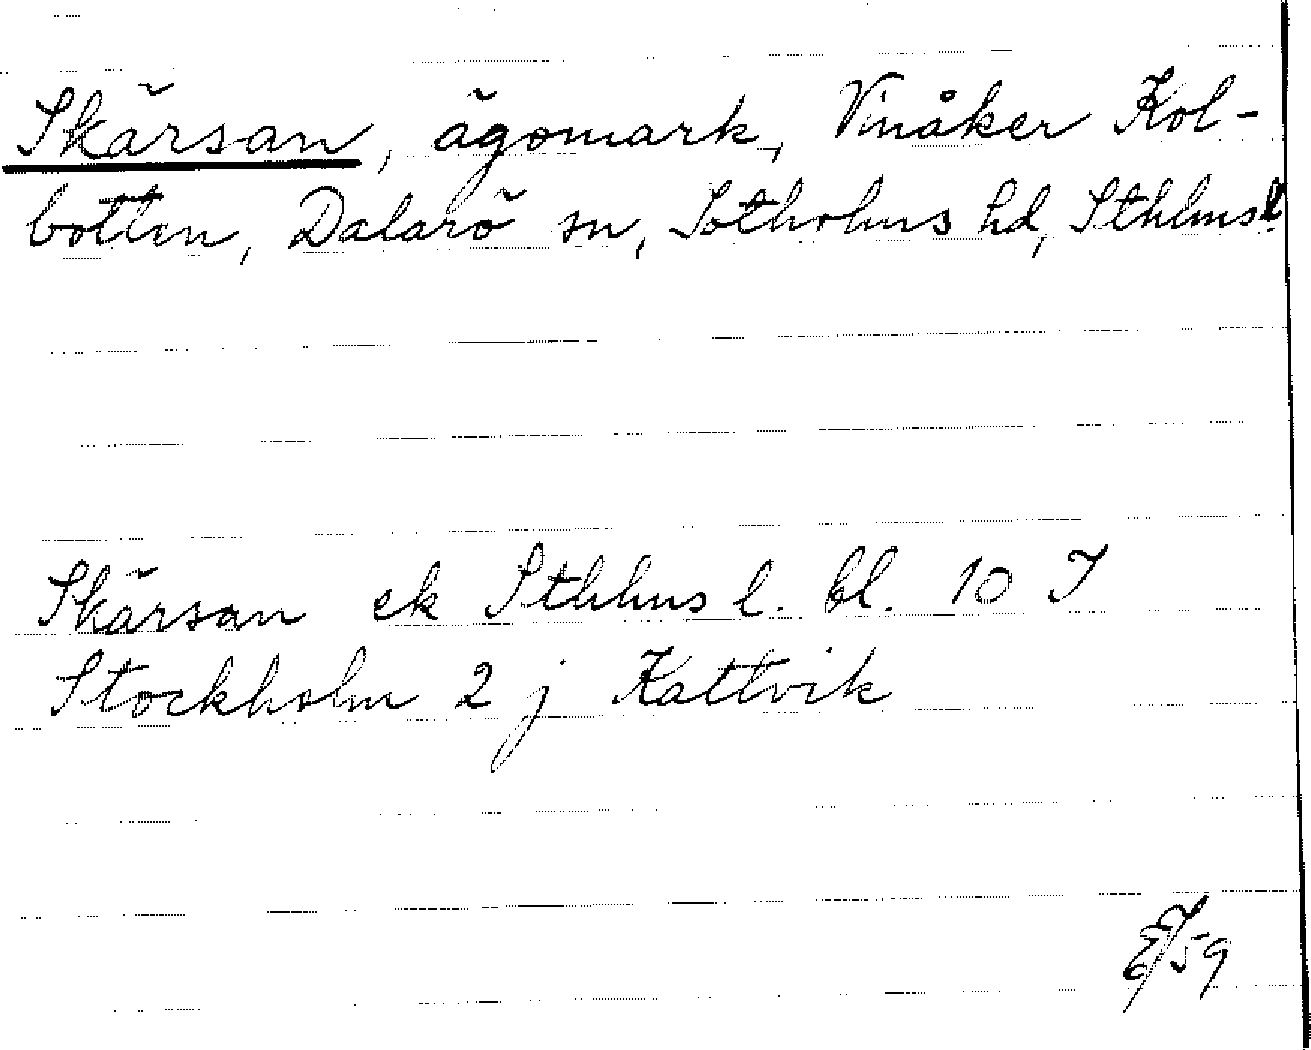 Skärsan, ägomark, Vinåker Kol-
botten, Dalarö sn, Sotholms hd, Sthlms l.
Skärsan ek Sthlms l. bl. 10 I
Stockholm 2 j Kattvik
59